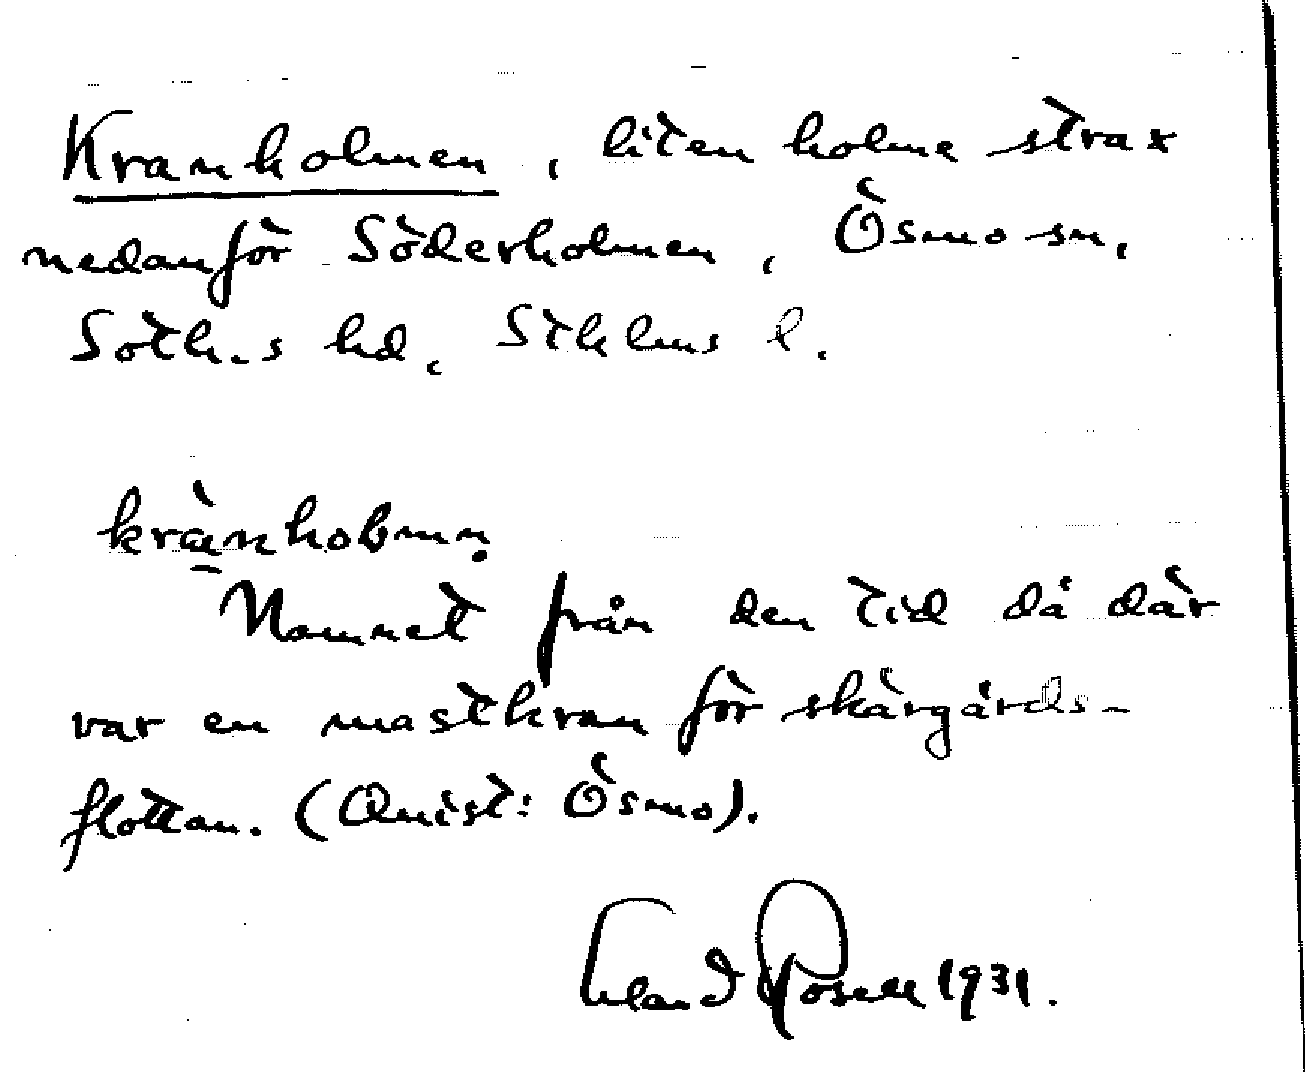 Kranholmen, liten holme strax
nedanför Söderholmen, Ösmo sn,
Soth.s hd, Sthlms l.
krànholmen
Namnet från den tid då där
var en mastkran för skärgårds-
flottan. (Quist: Ösmo).
Erland Rosell 1931.